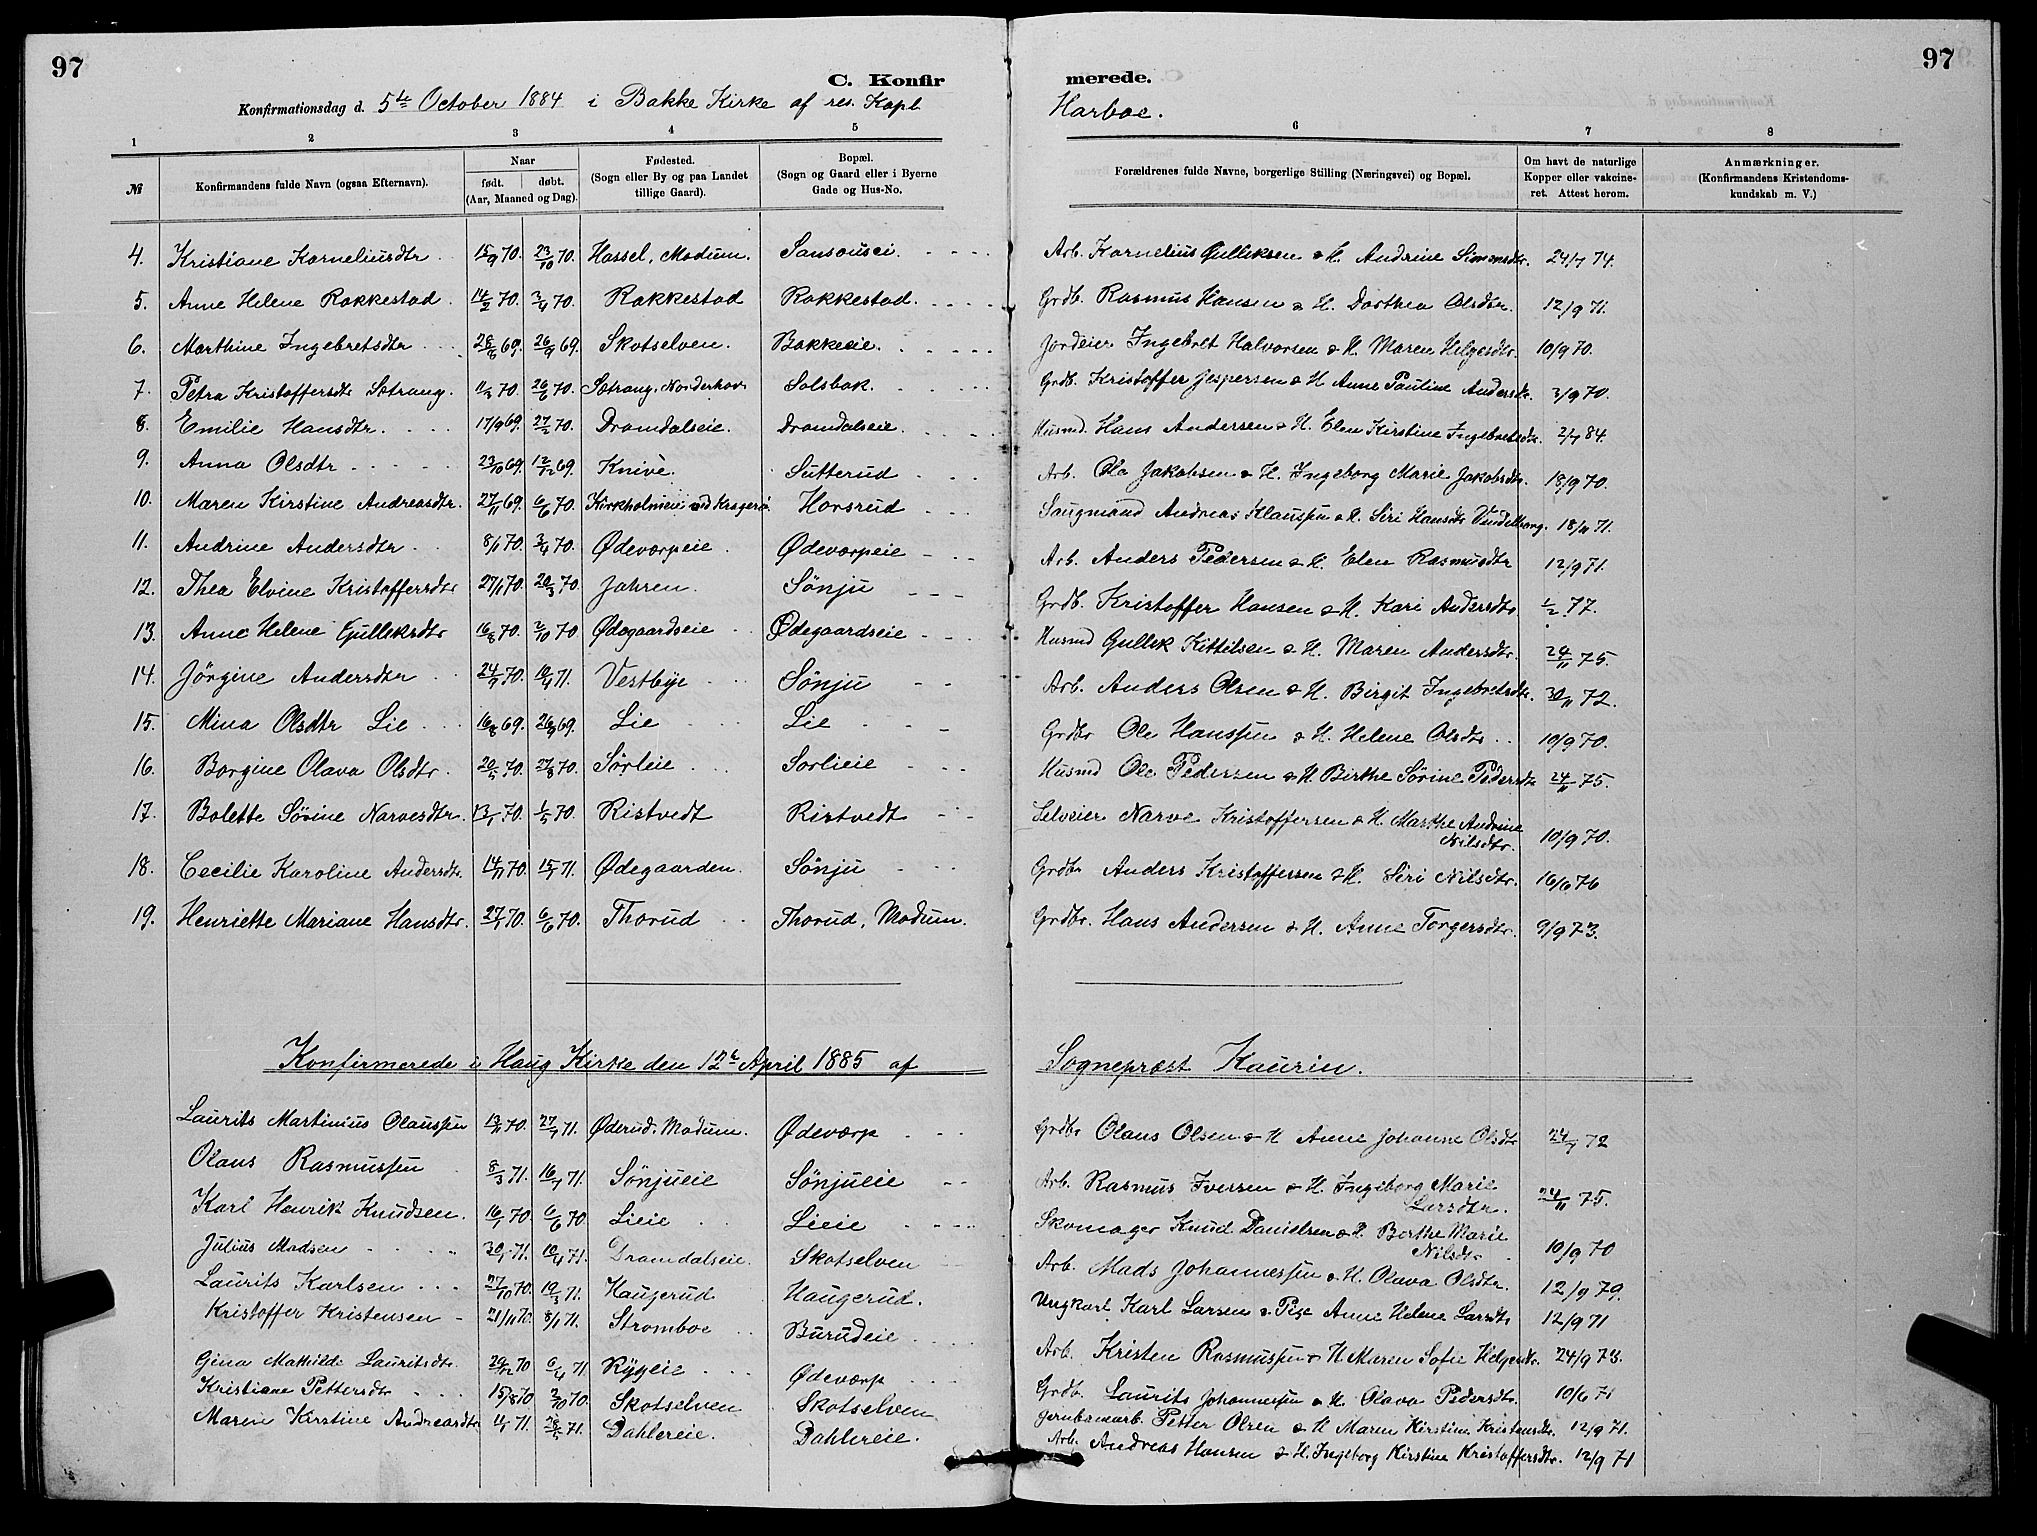 97
97
C. Konfirmerede.
Konfirmationsdag d. 5te October 1884 i Bakke Kirke af res. Kapl Harboe.
1 2 3 4 5 6 7 8
№ Konfirmandens fulde Navn (ogsaa Efternavn). Naar født. døbt. (Aar, Maaned og Dag). Fødested. (Sogn eller By og paa Landet tillige Gaard). Bopæl. (Sogn og Gaard eller i Byerne Gade og Hus-No. Forældrenes fulde Navne, borgerlige Stilling (Næringsvei) og Bopæl. Om havt de naturlige Kopper eller vakcineret. Attest herom. Anmærkninger. (Konfirmandens Kristendomskundskab m. V.)
4. Kristiane Korneliusdtr 15/9 70. 23/10 70. Hassel, Modum. Sansousi. Arb. Kornelius Gulliksen & H. Andrine Simensdtr. 24/7 74.
5. Anne Helene Rakkestad. 14/2 70. 3/4 70. Rakkestad Rakkestad. Grdb. Rasmus Hansen & H. Dorthea Olsdtr. 12/9 71.
6. Marthine Ingebretsdtr 28/8 69. 26/9 69. Skotselven. Bakkeeie. Jordeier Ingebret Halvorsen & H. Maren Helgesdtr. 10/9 70.
7. Petra Kristoffersdtr Sætrang. 11/3 70. 26/6 70. Sætrang, Norderhov Solsbak. Grdb. Kristoffer Jespersen & H Anne Pauline Andersdtr. 3/9 70.
8. Emilie Hansdtr. 17/9 69. 27/2 70. Dramdalseie. Dramdalseie. Husmd. Hans Andersen & H. Elen Kirstine Ingebretsdtr. 2/7 84.
9. Anna Olsdtr 23/10 69. 12/12 69. Knive. Sutterud Arb. Ole Jakobsen & H. Ingeborg Marie Jakobsdtr. 18/9 70.
10. Maren Kirstine Andreasdtr. 27/11 69. 6/6 70. Kirkholmen ved Kragerö. Horsrud Saugmand Andreas Klaussen & H. Siri Hansdtr 18/11 71.
11. Andrine Andersdtr 8/1 70. 3/4 70. Ødeværpeie. Ødeværpeie Arb. Anders Pedersen & H. Elen Rasmusdtr 12/9 71.
12. Thea Elvine Kristoffersdtr 27/1 70. 20/3 70. Jahren. Sönju Grdb. Kristoffer Hansen & H. Kari Andersdtr 1/2 77.
13. Anne Helene Gulliksdtr 16/8 70. 2/10 70 Ødegaardseie Ødegaardseie Husmd Gullik Kittilsen & H. Maren Andersdtr. 24/11 75.
14. Jörgine Andersdtr 24/9 70. 10/4 71. Vestbye Sönju Arb. Anders Olsen & H. Birgit Ingebretsdtr. 30/11 72.
15. Mina Olsdtr Lie 16/8 69. 26/9 69. Lie Lie Grdbr Ole Hanssen & H. Helene Olsdtr 10/9 70.
16. Borgine Olava Olsdtr. 20/5 70. 27/8 70. Sörlieie Sorlieie Husmd Ole Pedersen & H Birthe Sörine Pedersdtr 24/11 75.
17. Bolette Sörine Narvesdtr. 13/1 70. 1/5 70. Ristvedt Ristvedt Selveier Narve Kristoffersen & H. Marthe Andrine Nilsdtr. 10/9 70.
18. Cecilie Karoline Andersdtr. 14/11 70. 15/1 71. Ødegaarden. Sönju Grdbr Anders Kristoffersen & H. Siri Nilsdtr. 16/6 76
19. Henriette Mariane Hansdtr. 27/1 70. 6/6 70. Thorud Thorud, Modum. Grdbr. Hans Andersen & H. Anne Torgersdtr. 9/9 73.
Konfirmerede i Haug Kirke den 12te April 1885 af Sogneprest Kaurin.
Laurits Martinius Olaussen 13/11 70. 27/1 71. Øderud, Modum. Ødeværp Grdbr Olaus Olsen & H Anne Johanne Olsdtr 24/7 72
Olaus Rasmussen 8/3 71. 16/7 71. Sönjueie Sönjueie Arb. Rasmus Iversen & H. Ingeborg Marie Larsdtr. 24/11 75.
Karl Henrik Knudsen. 16/1 70 6/6 70. Lieie Lieie Skomager Knud Danielsen & H. Berthe Marie Nilsdtr 10/9 70
Julius Madsen 30/1 71. 10/4 71. Dramdalseie. Skotselven Arb. Mads Johannessen & H. Olava Olsdtr. 12/9 79.
Laurits Karlsen 27/10 70. 19/3 71. Haugerud Haugerud. Ungkarl Karl Larsen & Pige Anne Helene Larsdtr 12/9 71
Kristoffer Kristensen 21/11 70. 8/1 71. Stromboe Burudeie Arb. Kristen Rasmussen & H Maren Sofie Helgesdtr. 24/9 73.
Gina Mathilde Lauritsdtr. 29/12 70 6/4 71 Rygeie Ødeværp Grdb. Laurits Johannessen & H. Olava Pedersdtr. 10/6 71
Kristiane Pettersdtr 15/8 70 2/10 70. Skotselven Skotselven Jernbanearb. Petter Olsen & H Maren Kirstine Kristensdtr. 12/9 71.
Maren Kirstine Andreasdtr 4/5 71. 28/5 71. Dahlereie. Dahlereie. Arb. Andreas Hansen & H. Ingeborg Kirstine Kristoffersdtr. 12/9 71